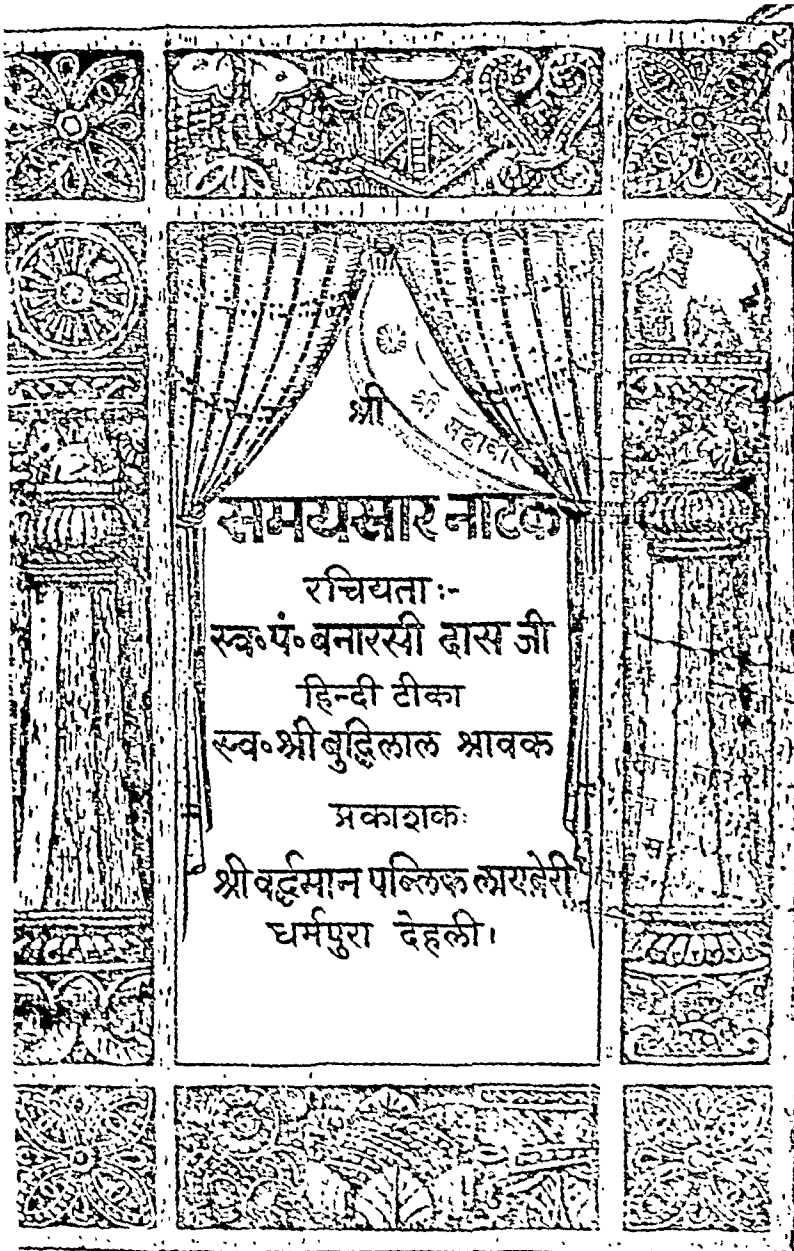 श्री
श्री महावीर
समयसार नाटक
रचियता :-
स्व॰ पं॰ बनारसी दास जी
हिन्दी टीका
स्व॰ श्री बुद्धिलाल श्रावक
प्रकाशकः
श्री वर्द्धमान पब्लिक लायब्रेरी
धर्मपुरा देहली।